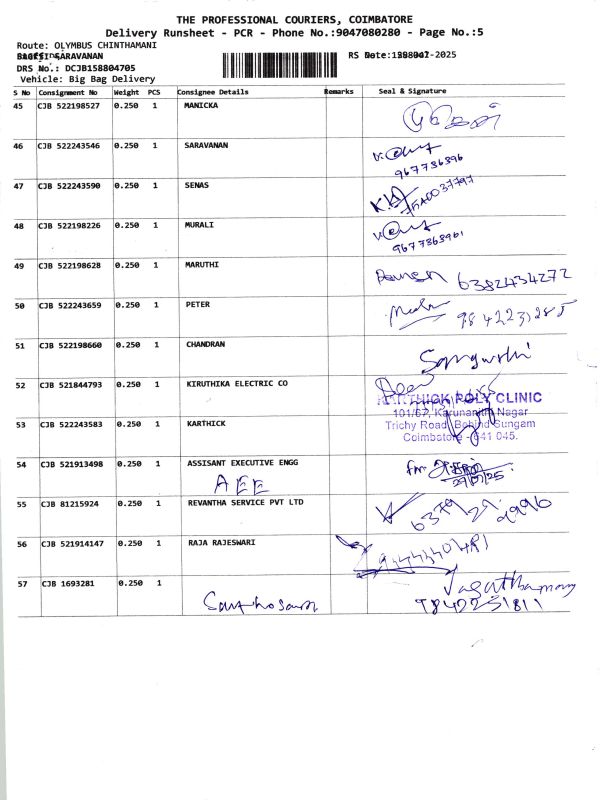 THE PROFESSIONAL COURIERS, COIMBATORE
Delivery Runsheet - PCR - Phone No.:9047080280 - Page No.:5
Route: OLYMBUS CHINTHAMANI
SARAVANAN
DRS No.: DCJB158804705
Vehicle: Big Bag Delivery
S No Consignment No Weight PCS Consignee Details Remarks Seal & Signature
45 CJB 522198527 0.250 1 MANICKA
46 CJB 522243546 0.250 1 SARAVANAN
9677363961
47 CJB 522243590 0.250 1 SENAS
48 CJB 522198226 0.250 1 MURALI
9677363961
49 CJB 522198628 0.250 1 MARUTHI
6382434272
50 CJB 522243659 0.250 1 PETER
9842231285
51 CJB 522198660 0.250 1 CHANDRAN
52 CJB 521844793 0.250 1 KIRUTHIKA ELECTRIC CO
KARTHICK POLY CLINIC
101/67, Karunanithi Nagar
53 CJB 522243583 0.250 1 KARTHICK
Trichy Road, Behind Sungam
Coimbatore - 641 045.
54 CJB 521913498 0.250 1 ASSISANT EXECUTIVE ENGG
AEE
55 CJB 81215924 0.250 1 REVANTHA SERVICE PVT LTD
56 CJB 521914147 0.250 1 RAJA RAJESWARI
57 CJB 1693281 0.250 1
9842251811